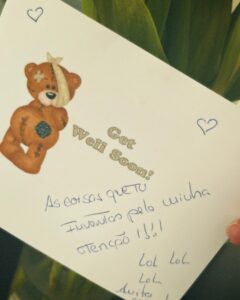 Get
Well Soon!
As coisas que tu
Inventas pela minha
atenção !!!!
Lol Lol
Lol
Anita !